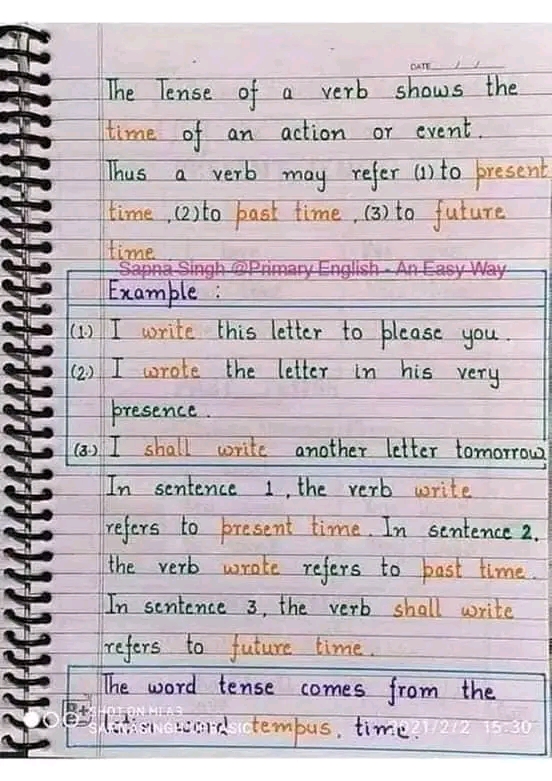 DATE / /
The Tense of a verb shows the
time of an action or event.
Thus a verb may refer (1) to present
time, (2) to past time, (3) to future
time
Sapna Singh @Primary English - An Easy Way
Example :
(1.) I write this letter to please you.
(2.) I wrote the letter in his very
presence.
(3.) I shall write another letter tomorrow
In sentence 1, the verb write
refers to present time. In sentence 2,
the verb wrote refers to past time.
In sentence 3, the verb shall write
refers to future time.
The word tense comes from the
word tempus, time.
SHOT ON MI A3
2021/2/2 15:30